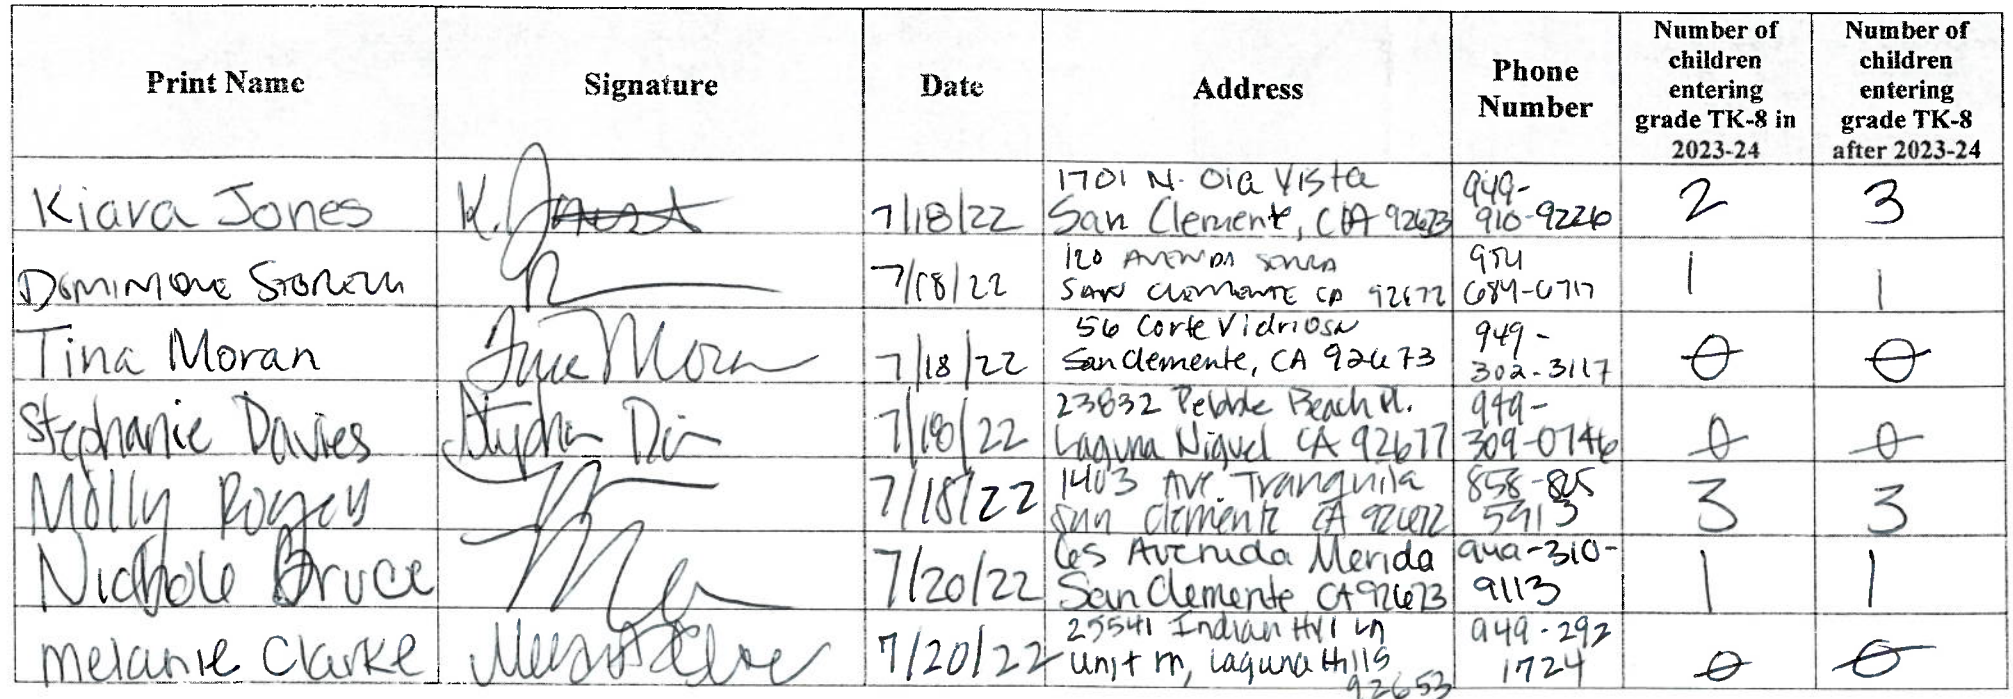 Print Name Signature Date Address Phone Number Number of children entering grade TK-8 in 2023-24 Number of children entering grade TK-8 after 2023-24
Kiara Jones K. Jones 7/18/22 1701 N. Ola Vista San Clemente, CA 92673 949-910-9226 2 3
7/18/22 120 AVENIDA SAN CLEMENTE CA 92672 1 1
Tina Moran Tina Moran 7/18/22 56 Corte Vidriosa San Clemente, CA 92673 949-302-3117 0 0
Stephanie Davies 7/18/22 23832 Pebble Beach Pl. Laguna Niguel CA 92677 949-309-0746 0 0
Molly 7/18/22 1403 Ave. Tranquila San Clemente CA 92672 3 3
Nichole Bruce 7/20/22 65 Avenida Merida San Clemente CA 92673 949-310-9113 1 1
Melanie Clarke 7/20/22 25541 Indian Hill Ln Unit M, Laguna Hills 92653 949-292 1724 0 0